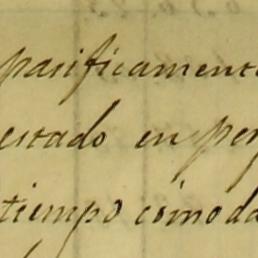 pasificament
estado en per
tiempo cómoda